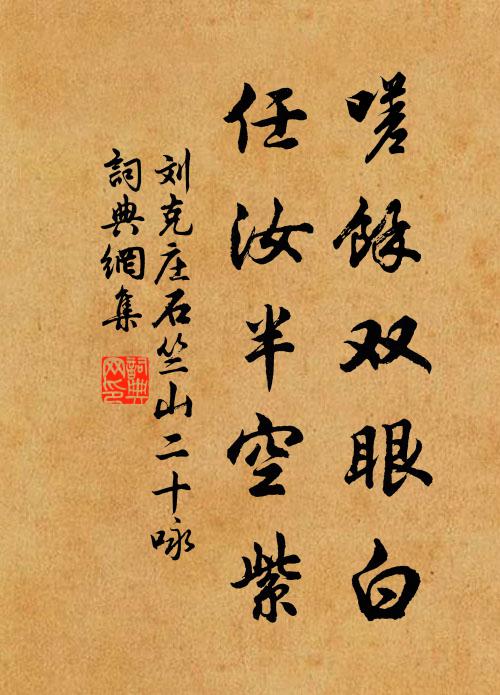 嗟餘双眼白
任汝半空紫
刘克庄石竺山二十咏
詞典網集
詞典
网印